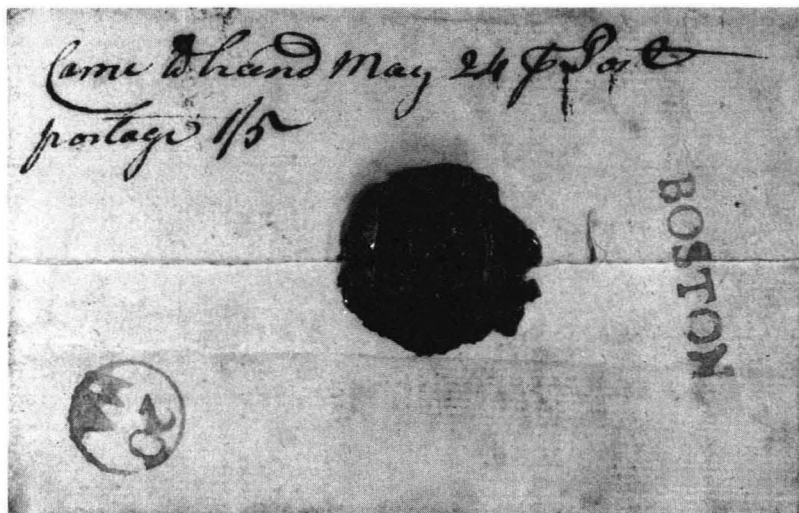 Came to hand May 24 ⅌ Post
postage 1/5
BOSTON